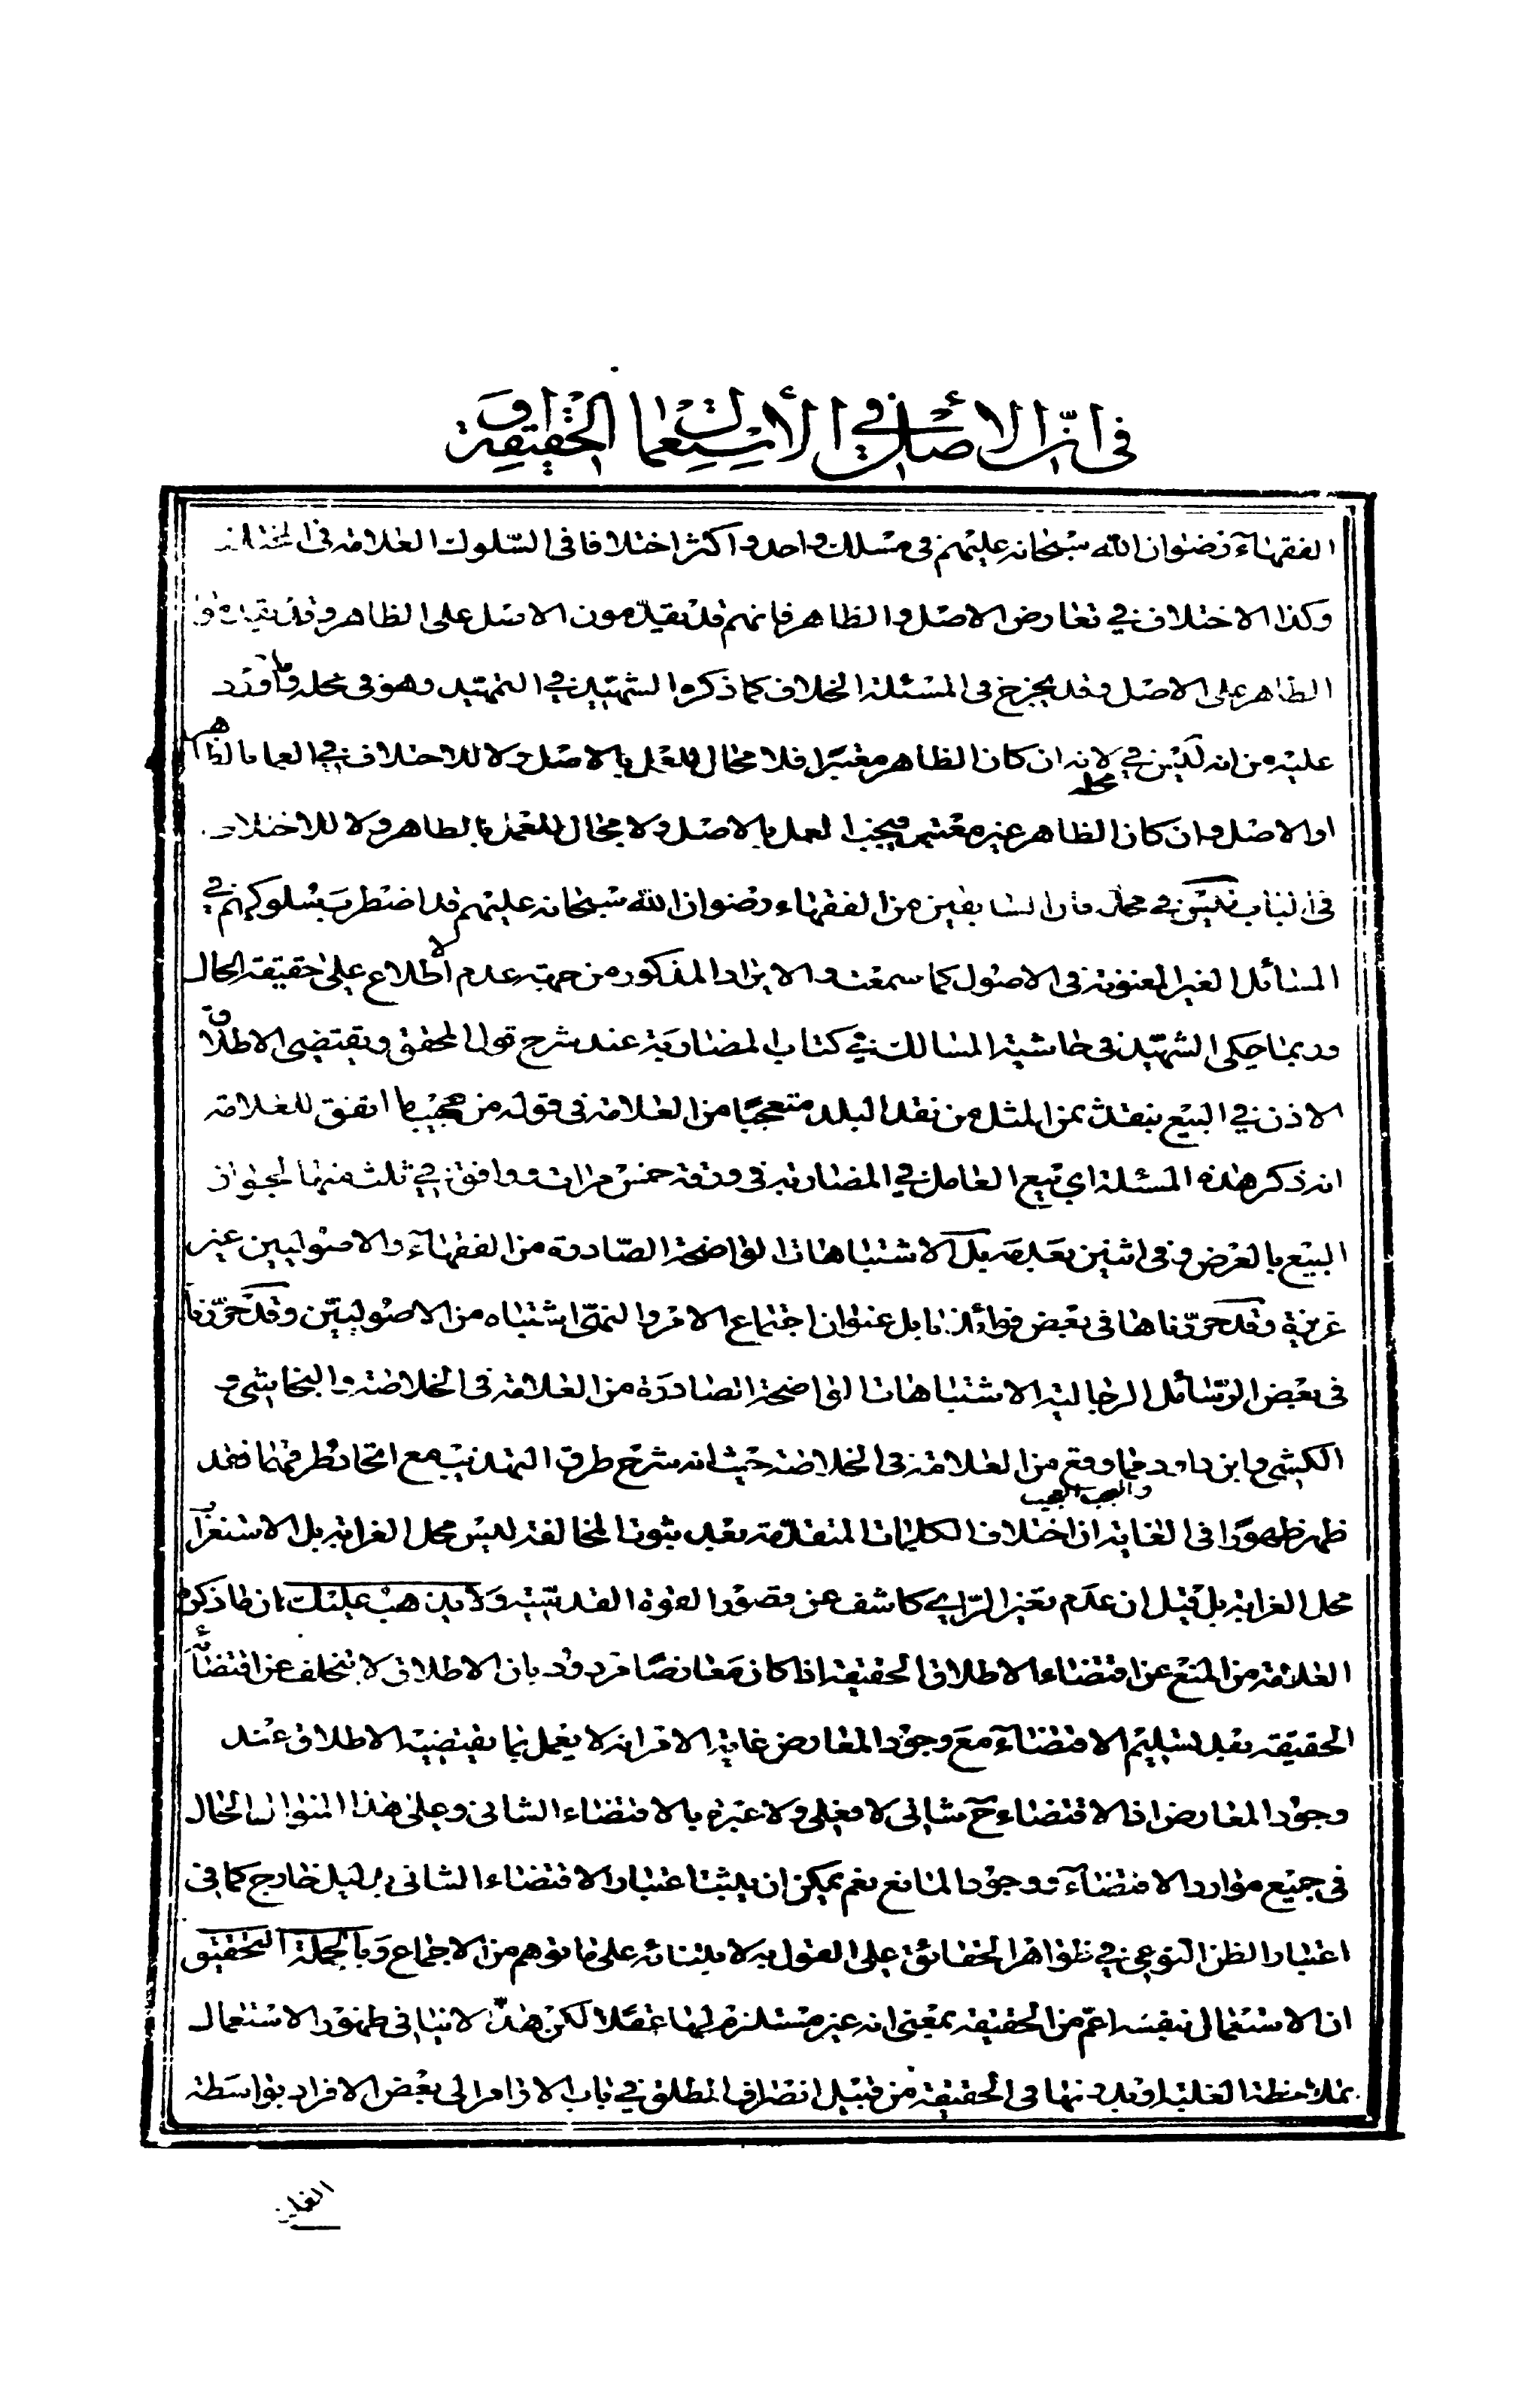 فى انّ الاصل في الأستعمال الحقيقة او
الفقهاء رضوان الله سبحانه عليهم فى مسلك واحد واكثر اختلافا فى السّلوك العلامة فى المختلف
وكذا الاختلاف في تعارض الاصل والظاهر فانهم قد يقدّمون الاصل على الظاهر وقد
الظاهر على الاصل وقد يخرج فى المسئلة الخلاف كما ذكره الشهيد في التمهيد وهو فى محله وما اورد
عليه من انه ليس في محله لانه ان كان الظاهر معتبرا فلا مجال للعمل بالاصل ولا للاختلاف في العمل بالظاهر
او الاصل وان كان الظاهر غير معتبر فيجب العمل بالاصل ولا مجال للعمل بالظاهر ولا للاختلاف
فى الباب فليس في محله فان السابقين من الفقهاء رضوان الله سبحانه عليهم قد اضطرب سلوكهم في
المسائل الغير المعنونة فى الاصول كما سمعت والايراد المذكور من جهة عدم الاطلاع على حقيقة الحال
وربما حكى الشهيد فى حاشية المسالك في كتاب المضاربة عند شرح قول المحقق ويقتضى الاطلاق
الاذن في البيع بنقد ثمن المثل من نقد البلد متعجبا من العلامة فى قوله من عجيب ما اتفق للعلامة
انه ذكر هذه المسئلة اي بيع العامل في المضاربة فى ورقة خمس مرات ووافق في ثلث منها لجواز
البيع بالعرض وفى اثنين بعدمه بل الاشتباهات الواضحة الصّادرة من الفقهاء والاصوليين غير
عزيزة وقد حرّرناها فى بعض فوائدنا بل عنوان اجتماع الامر والنهى اشتباه من الاصوليّين وقد حرّرنا
فى بعض الرّسائل الرجالية الاشتباهات الواضحة الصادرة من العلامة فى الخلاصة والنجاشى و
الكشى وابن داود فما وقع من العلامة فى الخلاصة حيث انه شرح طرق التهذيب مع اتحاد طرقهما فقد
ظهر ظهورا فى الغاية ان اختلاف الكلمات المتقدّمة بعد ثبوت المخالفة ليس محل الغرابة بل الاستغراب والعجب العجيب
محل الغرابة بل قيل ان عدم تغير الرّاي كاشف عن قصور القوة القدسيّة ولا يذهب عليك ان ما ذكره
العلامة من المنع عن اقتضاء الاطلاق الحقيقة اذا كان معارضا مردود بان الاطلاق لا يتخلف عن اقتضائه
الحقيقة بعد تسليم الاقتضاء مع وجود المعارض غاية الامر انه لا يعمل بما يقتضيه الاطلاق عند
وجود المعارض اذ الاقتضاء ح شانى لا فعلى ولا عبرة بالاقتضاء الشانى وعلى هذا المنوال الحال
فى جميع موارد الاقتضاء ووجود المانع نعم يمكن ان يثبت اعتبار الاقتضاء الشانى بدليل خارج كما فى
اعتبار الظن النوعي في ظواهر الحقائق على القول به لابتنائه على ما توهم من الاجماع وبالجملة التحقيق
ان الاستعمال بنفسه اعمّ من الحقيقة بمعنى انه غير مستلزم لها عقلا لكن هذا لا ينافى ظهور الاستعمال
بملاحظة الغلبة وبدونها فى الحقيقة من قبيل انصراف المطلق في باب الاوامر الى بعض الافراد بواسطة